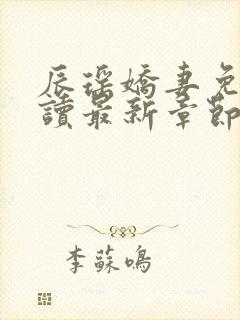 辰瑤嬌妻免
讀最新章節
李蘇鳴